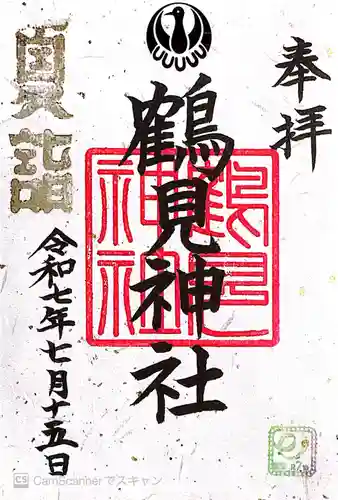 奉拝
鶴見神社
鶴見
神社
夏詣
令和七年七月十五日
CS CamScannerでスキャン